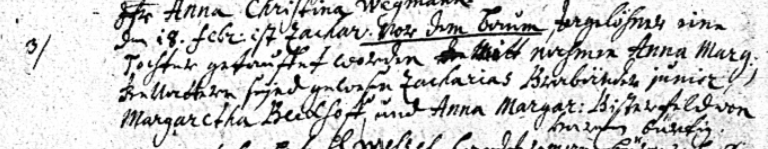 Anna Christina Wegmann
3/ den 18. febr: ist Zachar. Vor dem baum, tagelöhner eine
Tochter getauffet worden mit nahmen Anna Marg:
Gevattern seynd gewesen Zacharias Brabänder junior,
Margaretha Berckhoff, und Anna Margar: Bisterfeld von
bürtig.